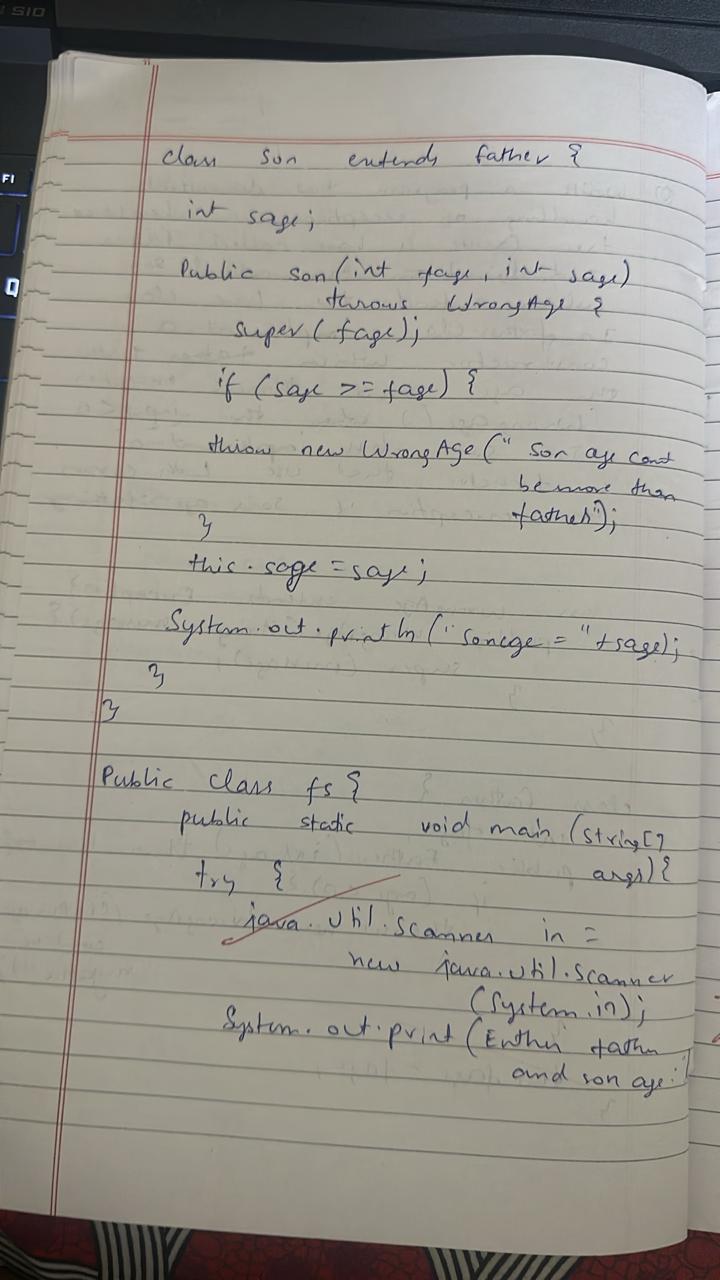 SIO
F1
Q
class son extends father {
int sage;
Public son(int fage, int sage)
throws WrongAge {
super(fage);
if (sage >= fage) {
throw new WrongAge(" Son age cant
be more than
father");
}
this.sage = sage;
System.out.println("sonage = "+sage);
}
}
Public class fs {
public static void main (String[]
args){
try {
java.util.Scanner in =
new java.util.Scanner
(System.in);
System.out.print(Enther father
and son age: